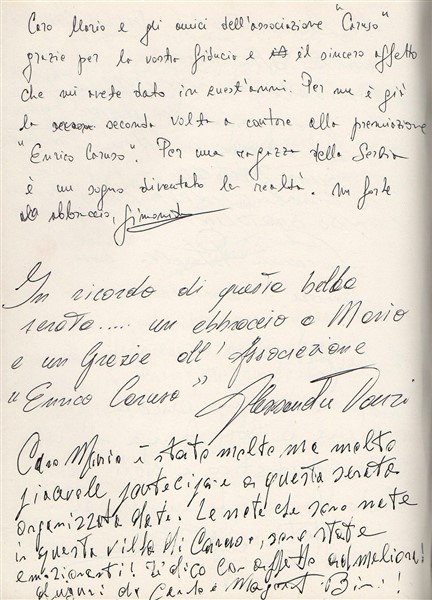 Caro Mario e gli amici dell'associazione "Caruso"
grazie per la vostra fiducia e il sincero affetto
che mi avete dato in quest'anni. Per me è già
la seconda volta a cantare alla premiazione
"Enrico Caruso". Per una ragazza della Serbia
è un sogno diventato la realtà. Un forte
abbraccio,
In ricordo di questa bella
serata.... un abbraccio a Mario
e un Grazie all'Associazione
"Enrico Caruso" Alessandra
Caro Mario è stato molto ma molto
piacevole partecipare a questa serata
organizzata da te. Le note che sono nate
in questa villa di Caruso, sono state
emozionanti! Ti dico con affetto
auguri di